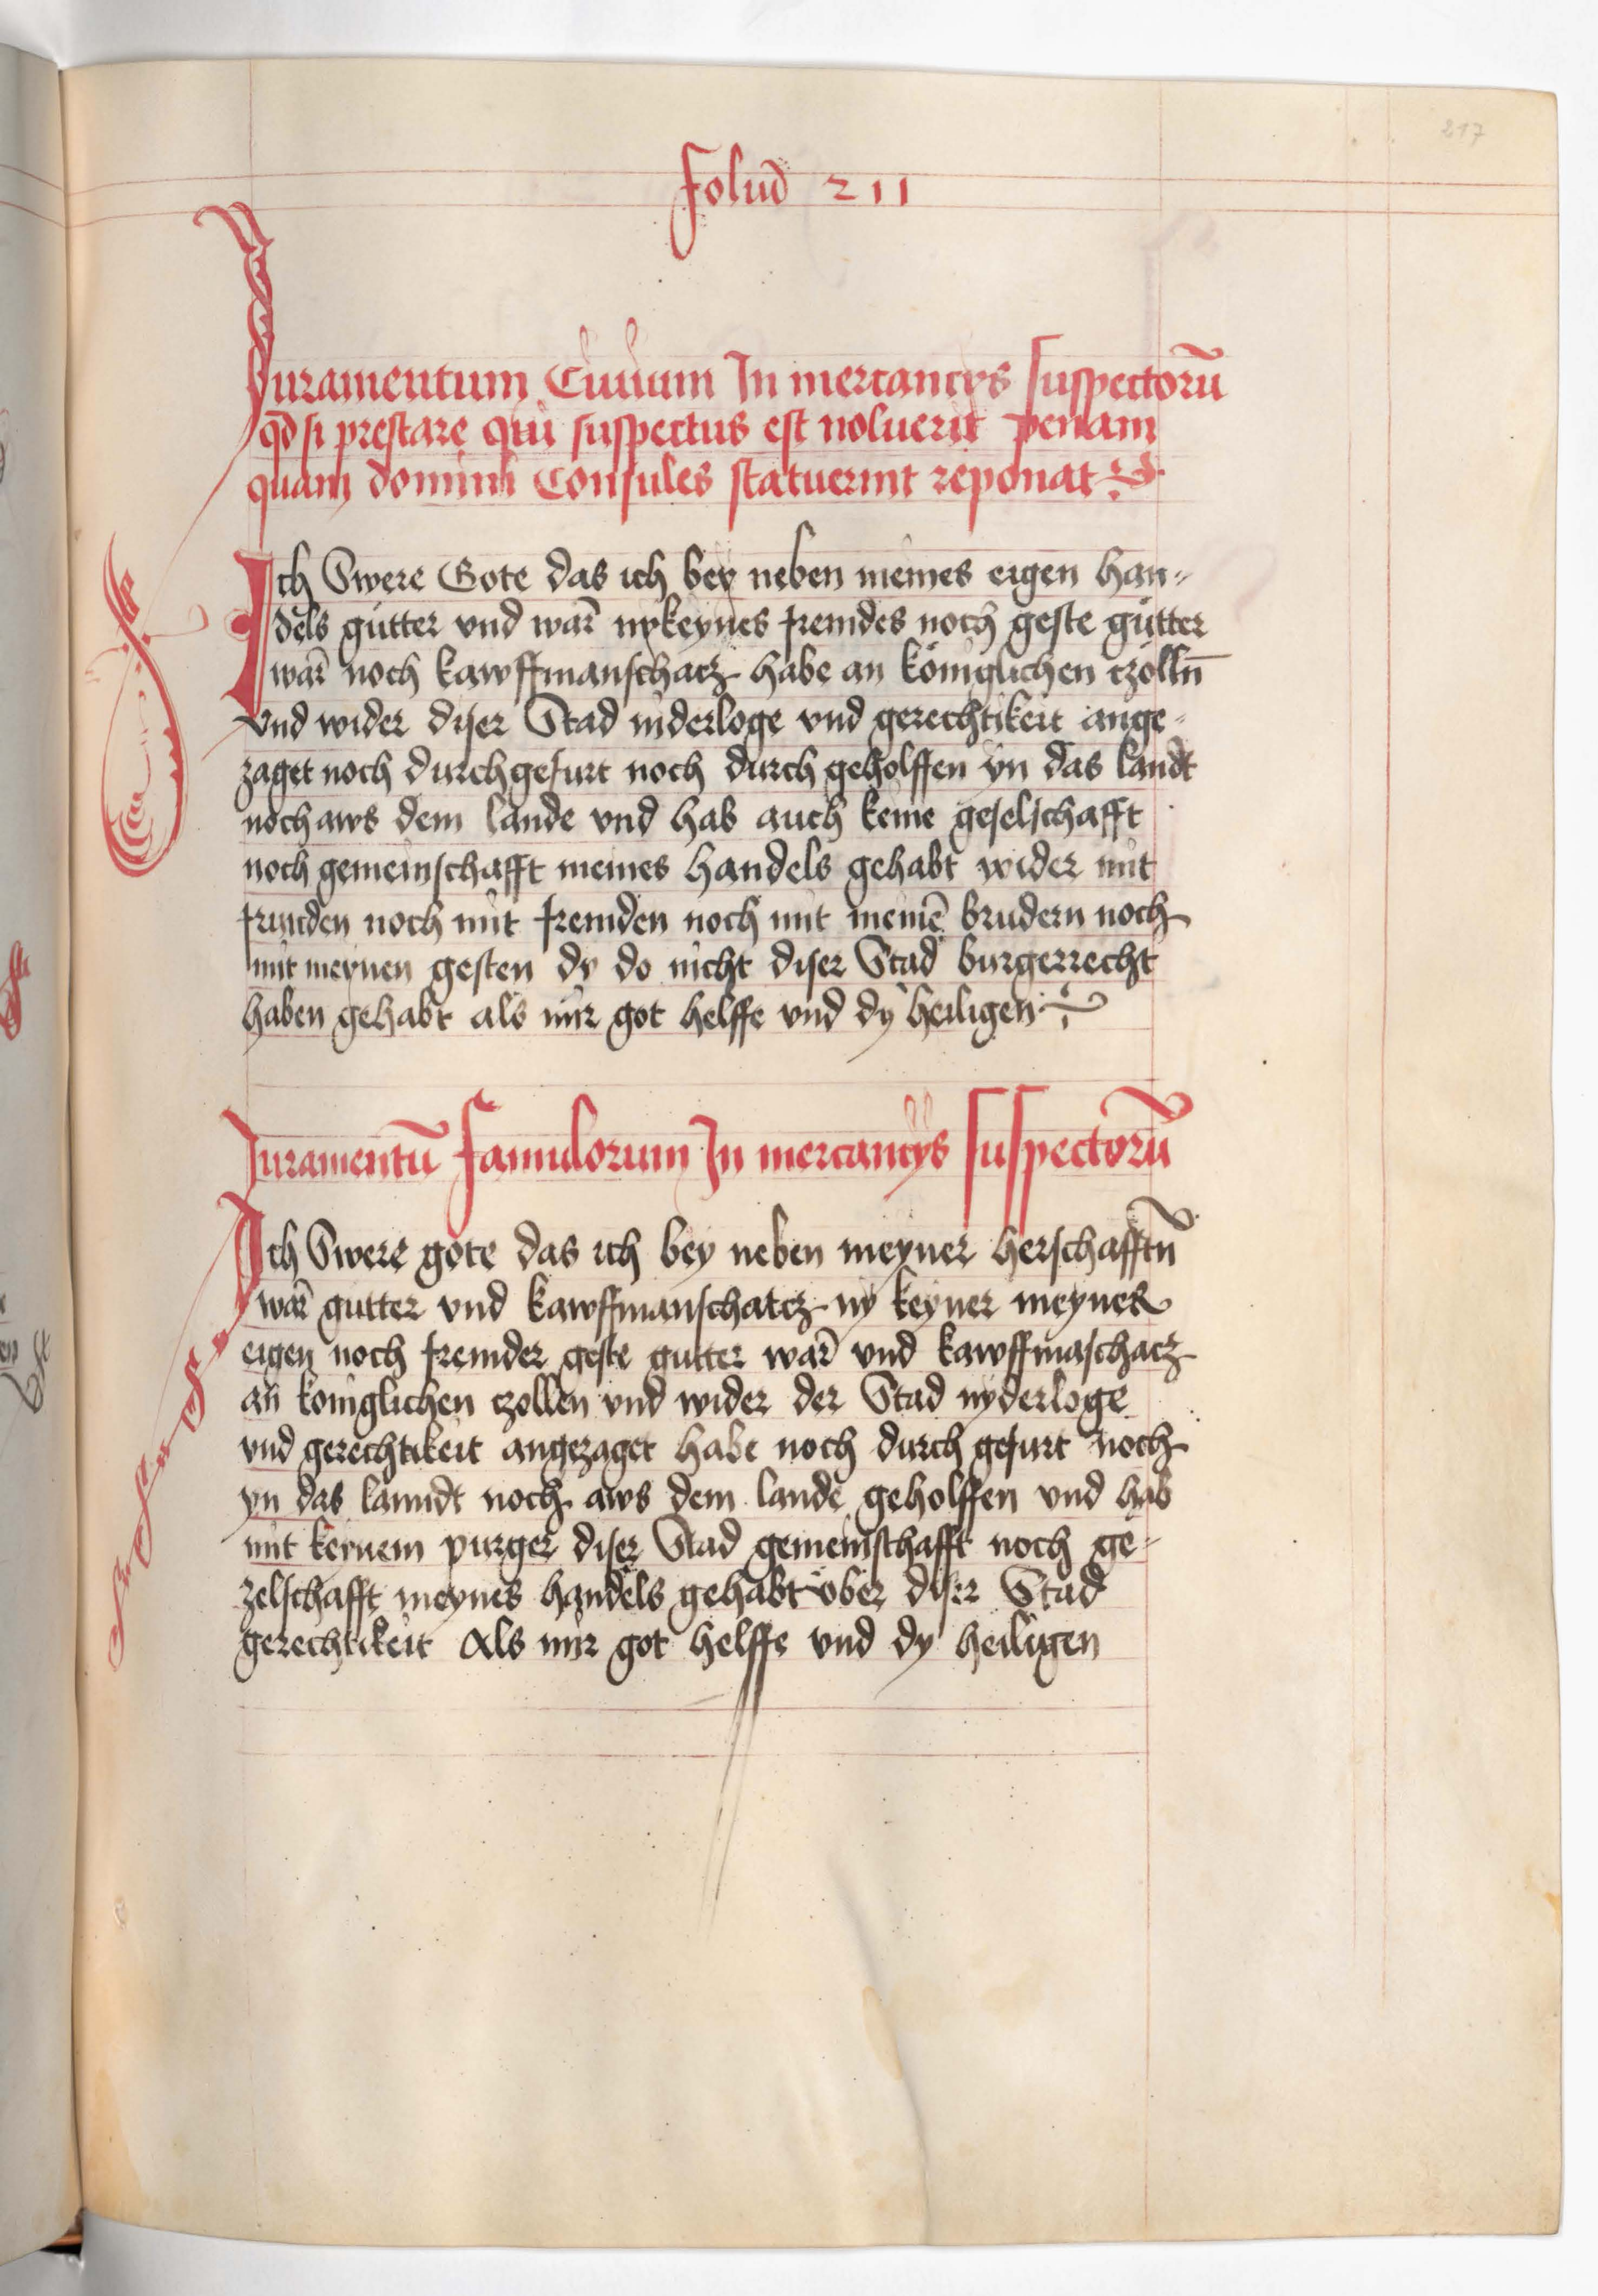 217
foluD 211
Juramentum Ciuium In mercancijs suspectorū
qd si prestare qui suspectus est noluerit penam
quam domini Consules statuerint reponat
Ich Swere Gote das ich bey neben meines eigen han-
dels gütter vnd war̄ nykeynes fremdes noch geste gütter
war̄ noch kawffmanschacz habe an königlichen czolln̄
vnd wider diser Stad niderloge vnd gerechtikeit ange-
zaget noch durchgefurt noch durch geholffen yn das landt
noch aws dem lande vnd hab auch keine geselschafft
noch gemeinschafft meines handels gehabt wider mit
frunden noch mit fremden noch mit meinē brudern noch
mit meynen gesten dy do nicht diser Stad burgerrecht
haben gehabt als mir got helffe vnd dy heiligen
Juramentū famulorum In mercancijs suspectorū
Ich Swere gote das ich bey neben meyner herschafftn̄
war̄ gutter vnd kawffmanschatcz ny keyner meyner
eigen noch fremder geste gutter war̄ vnd kawffmaschacz
an königlichen czollen vnd wider der Stad nyderloge
vnd gerechtikeit angezaget habe noch durch gefurt noch
yn das lanndt noch aws dem lande geholffen vnd hab
mit keynem purger diser Stad gemeinschafft noch ge-
zelschafft meynes handels gehabt ober diser Stad
gerechtikeit Als mir got helffe vnd dy heiligen